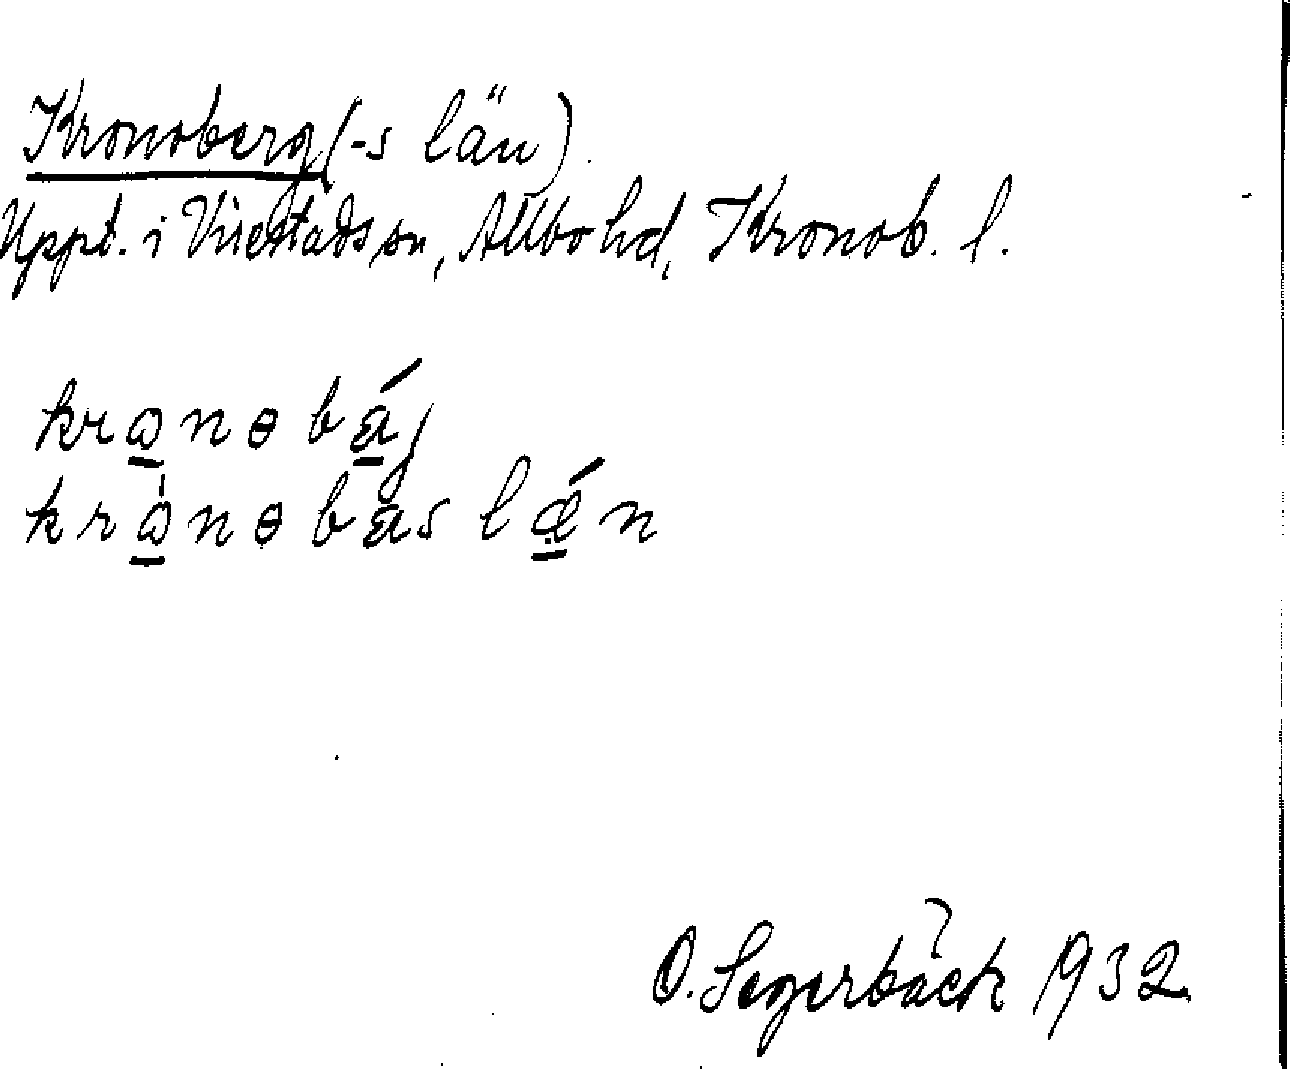 Kronoberg(-s län).
Uppt. i Virestads sn, Allbo hd, Kronob. l.
krω̲nɵbá̲j
krὼ̲nɵbas lǽ̲n
O. Segerbäck 1932